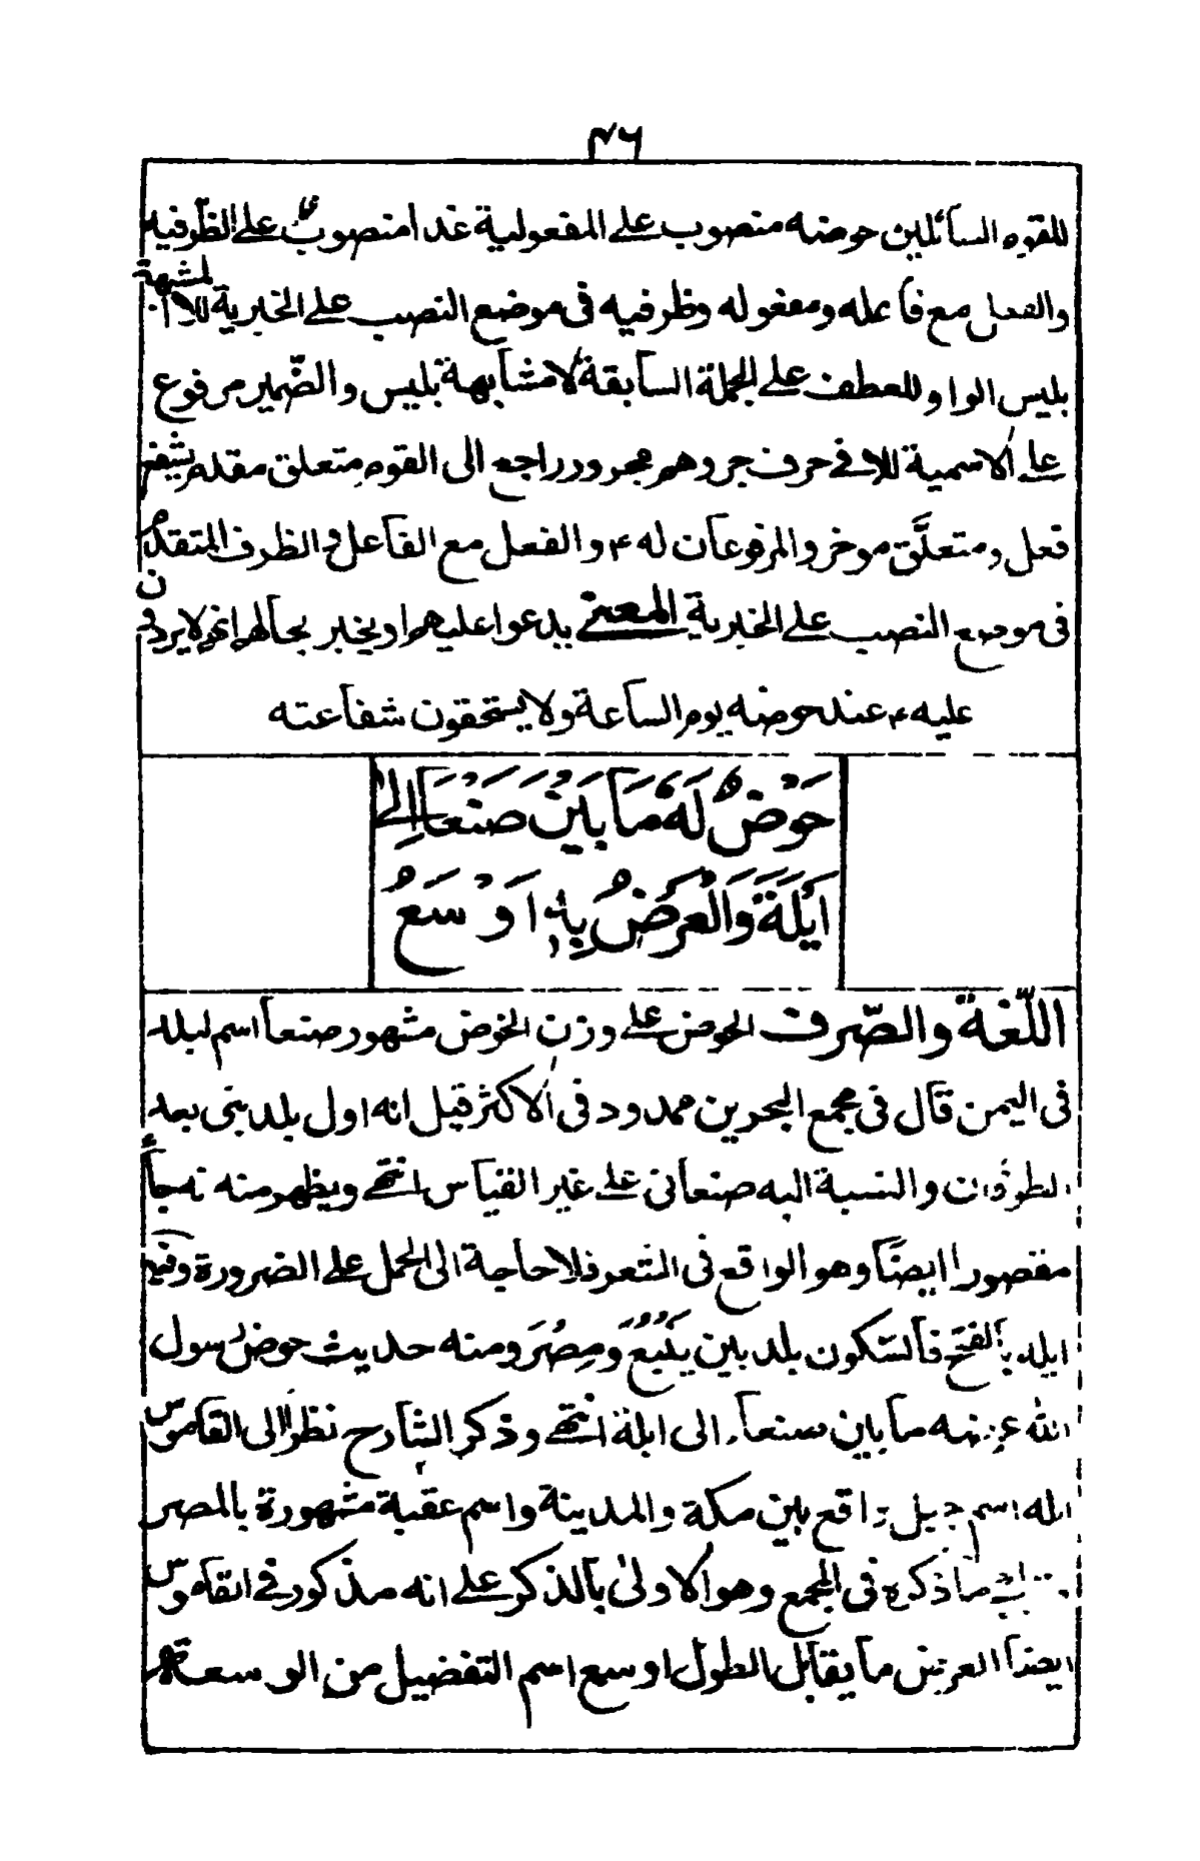 ۴۶
للقوم السائلين حوضه منصوب على المفعولية غدا منصوب على الظرفية
والفعل مع فاعله ومفعوله وظرفيه فى موضع النصب على الخبرية للا المشبهة
بليس الواو للعطف على الجملة السابقة لا مشابهة بليس والضمير مرفوع
على الاسمية للا فى حرف جر وهم مجرور راجع الى القوم متعلق مقدم يشفع
فعل ومتعلق موخر والمرفوعان له ۴ والفعل مع الفاعل والظرف المتقدم
فى موضع النصب على الخبرية المعنى يدعوا عليهم او يخبر بحالهم انهم لا يردون
عليه ۴ عند حوضه يوم الساعة ولا يستحقون شفاعته
حَوْضٌ لَهُ مَا بَيْنَ صَنْعَا اِلىٰ
اَيْلَةَ وَالْعَرْضُ بِهٖ اَوْسَعُ
اللّغة والصّرف الحوض على وزن الخوض مشهور صنعا اسم لبلد
فى اليمن قال فى مجمع البحرين ممدود فى الاكثر قيل انه اول بلد بنى بعد
الطوفان والنسبة اليه صنعانى على غير القياس انتهى ويظهر منه انه جاء
مقصورا ايضًا وهو الواقع فى الشعر فلا حاجة الى الحمل على الضرورة وفيه
ايله بالفتح فالسكون بلد بين يَنْبُعَ ومِصْرَ ومنه حديث حوض رسول
الله عرضه ما بين صنعاء الى ايلة انتهى وذكر الشارح نظرا الى القاموس
ايله اسم جبل واقع بين مكة والمدينة واسم عقبة مشهورة بالمصر
ما ذكره فى المجمع وهو الاولىٰ بالذكر على انه مذكور فى القاموس
ايضا العرض ما يقابل الطول اوسع اسم التفضيل من الوسعة